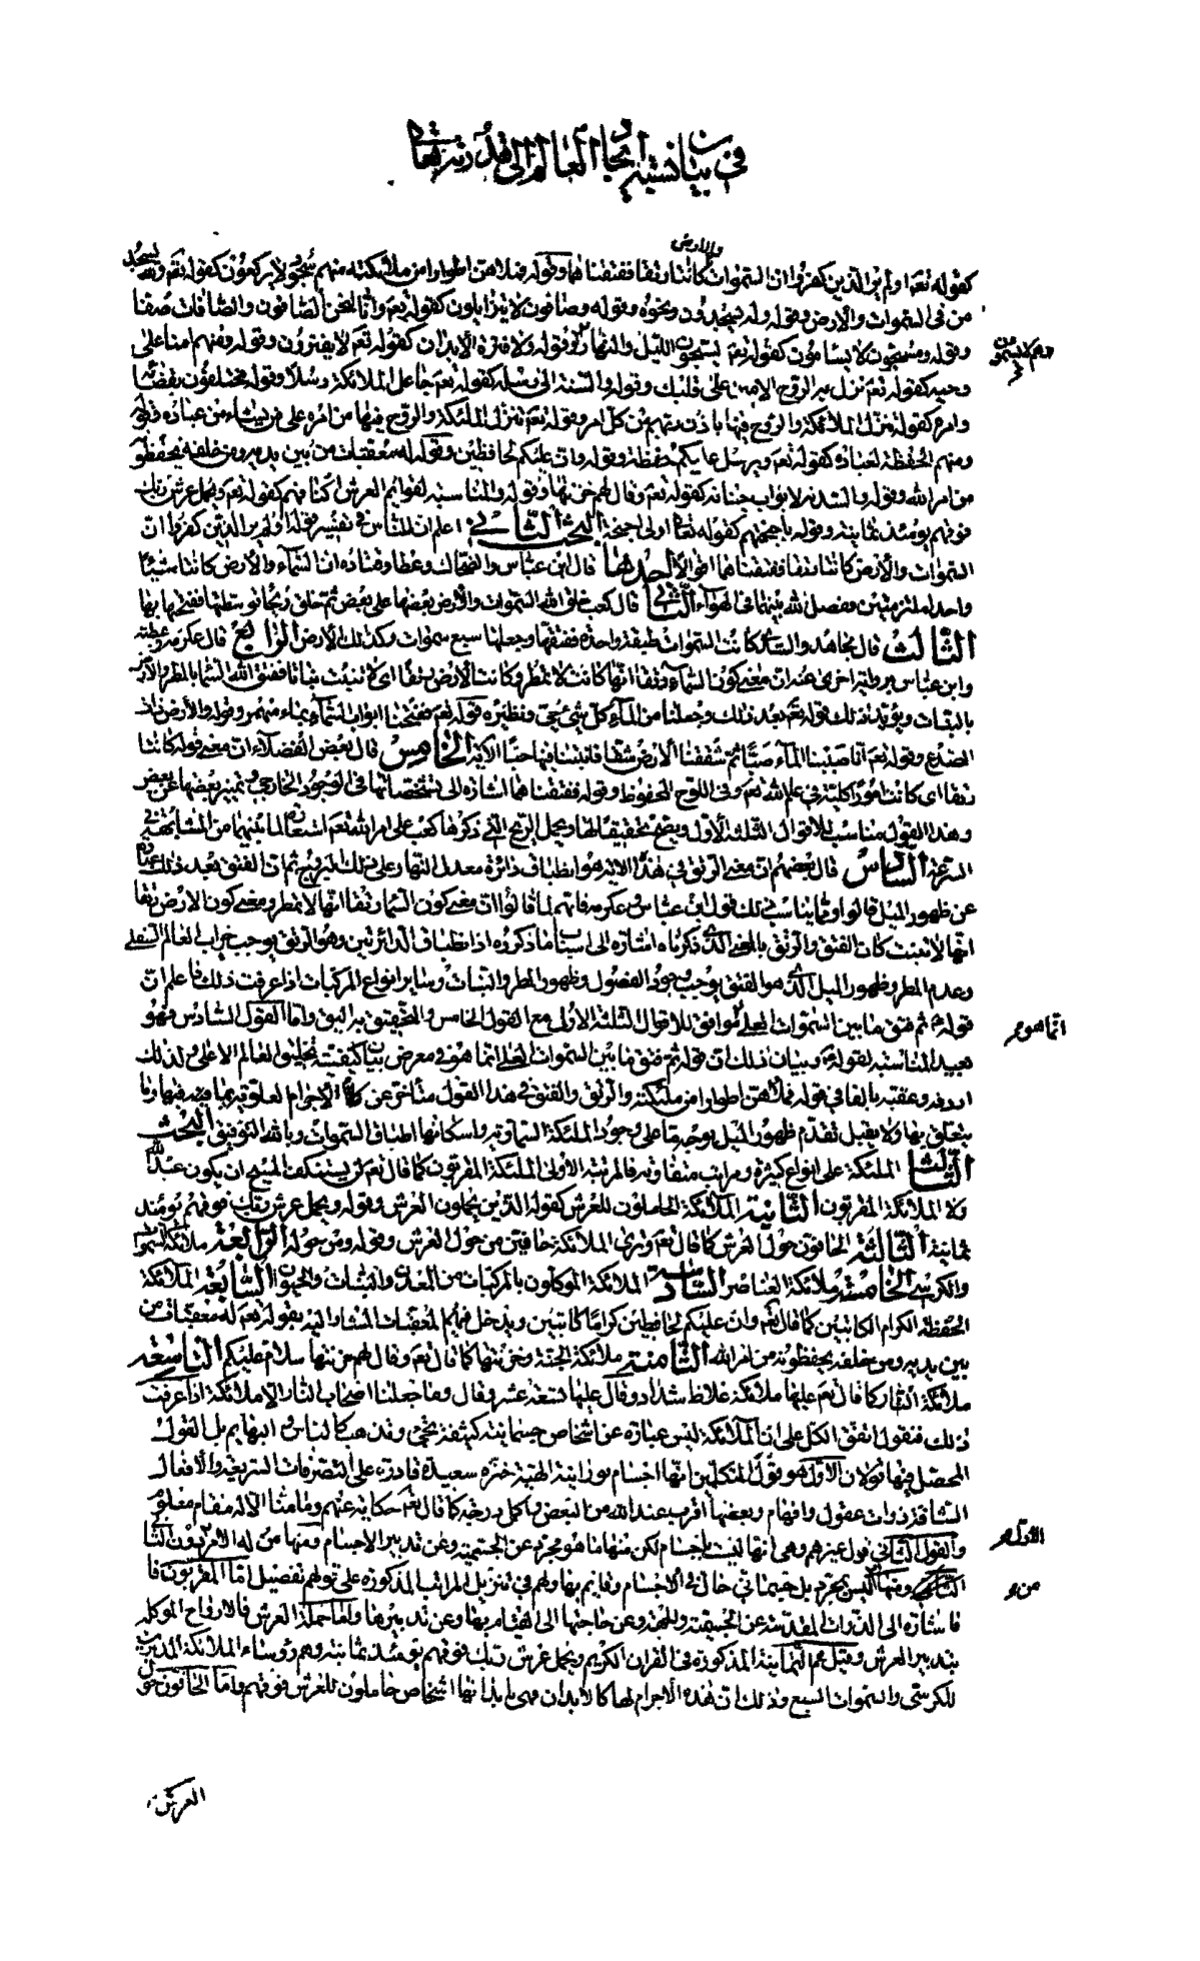 في بيان نسبة ايجاد العالم الى قدرته تعالى
والارض
كقوله تعم اولم ير الذين كفروا ان السموات كانتا رتقا ففتقناهما وقوله فملاهن اطوارا من ملائكته منهم سجود لا يركعون كقوله تعم ولله يسجد
من في السموات والارض وقوله وله يسجدون ونحوه وقوله وصافون لا يتزايلون كقوله تعم وانا لنحن الصافون والصافات صفا
وقوله ومسبحون لا يسأمون كقوله تعم يسبحون الليل والنهار وقوله ولا فترة الابدان كقوله تعم لا يفترون وقوله ومنهم امناء على
وهم لا يسئمون
وحيه كقوله تعم نزل به الروح الامين على قلبك وقوله والسنة الى رسله كقوله تعم جاعل الملائكة رسلا وقوله مختلفون بقضائه
وامره كقوله تنزل الملائكة والروح فيها باذن ربهم من كل امر وقوله تعم تنزل الملئكة والروح فيها من امره على من يشاء من عباده وقوله
ومنهم الحفظة لعباده كقوله تعم ويرسل عليكم حفظة وقوله وان عليكم لحافظين وقوله له معقبات من بين يديه ومن خلفه يحفظونه
من امر الله وقوله والسدنة لابواب جنانه كقوله تعم وقال لهم خزنتها وقوله والمناسبة لقوائم العرش اكتافهم كقوله تعم ويحمل عرش ربك
فوقهم يومئذ ثمانية وقوله باجنحتهم كقوله تعالى اولى اجنحة البحث الثاني اعلم ان للناس في تفسير قوله اولم ير الذين كفروا ان
السموات والأرض كانتا رتقا ففتقناهما اقوالا احدها قال ابن عباس والضحاك وعطا وقتاده ان السماء والأرض كانتا شيئا
واحدا ملتزمين ففصل الله بينهما في الهواء الثاني قال كعب خلق الله السموات والأرض بعضها على بعض ثم خلق ريحا توسطتها ففتحها بها
الثالث قال مجاهد والسدي كانت السموات طبقة واحدة ففتقها وجعلها سبع سموات وكذلك الارض الرابع قال عكرمه وعطية
وابن عباس برواية اخرى عنه ان معنى كون السماء رتقا انها كانت لا تمطر وكانت الأرض رتقا اى لا تنبت نباتا ففتق الله السما بالمطر والأرض
بالنبات ويؤيد ذلك قوله تعم بعد ذلك وجعلنا من الماء كل شئ حي ونظيره قوله تعم ففتحنا ابواب السماء بماء منهمر وقوله والأرض ذات
الصدع وقوله تعم انا صببنا الماء صبا ثم شققنا الأرض شقا فانبتنا فيها حبا الآية الخامس قال بعض الفضلاء ان معنى قوله كانتا
رتقا اى كانتا امورا كلية في علم الله تعم وفى اللوح المحفوظ وقوله ففتقناهما اشارة الى تشخصاتها في الوجود الخارجي وتميز بعضها عن بعض
وهذا القول مناسب للاقوال الثلثة الأول ويصح تحقيقا لها ويحمل الريح التى ذكرها كعب على امر الله تعم استعارة لما بينهما من المشابهة في
السرعة السادس قال بعضهم ان معنى الرتق في هذه الآية هو انطباق دائرة معدل النهار على فلك البروج ثم ان الفتق بعد ذلك عبارة
عن ظهور الميل قالوا ومما يناسب ذلك قول ابن عباس وعكرمة فانهم لما قالوا ان معنى كون السما رتقا انها لا تمطر ومعنى كون الارض رتقا
انها لا تنبت كان الفتق والرتق بالمعنى الذى ذكرناه اشارة الى اسباب ما ذكروه اذ انطباق الدائرتين وهو الرتق يوجب خراب العالم السفلى
وعدم المطر وظهور الميل الذى هو الفتق يوجب وجود الفصول وظهور المطر والنبات وساير انواع المركبات اذا عرفت ذلك فاعلم ان
قوله ثم فتق ما بين السموات العلى موافق للاقوال الثلثة الأول مع القول الخامس والتحقيق به اليق واما القول السادس فهو
انما هو
بعيد المناسبة لقوله وبيان ذلك ان قوله ثم فتق ما بين السموات العلى انما هو في معرض بيان كيفية تخليق العالم الاعلى ولذلك
اردفه وعقبه بالفا في قوله فملأهن اطوارا من ملئكته والرتق والفتق في هذا القول متأخر عن الاجرام العلوية بما فيها وما
يتعلق بها ولا يقبل تقدم ظهور الميل بوجه ما على وجود الملئكة السماوية واسكانها اطباق السموات وبالله التوفيق البحث
الثالث الملئكة على انواع كثيرة ومراتب متفاوته فالمرتبة الأولى الملئكة المقربون كما قال تعم لن يستنكف المسيح ان يكون عبدا لله
ولا الملائكة المقربون الثانية الملائكة الحاملون للعرش كقوله الذين يحملون العرش وقوله ويحمل عرش ربك فوقهم يومئذ
ثمانية الثالثة الحافون حول العرش كما قال تعم وترى الملائكة حافين من حول العرش وقوله ومن حوله الرابعة ملائكة السموات
والكرسي الخامسة ملائكة العناصر السادسة الملائكة الموكلون بالمركبات من المعدن والنبات والحيوان السابعة الملائكة
الحفظة الكرام الكاتبين كما قال تعم وان عليكم لحافظين كراما كاتبين ويدخل فيهم المعقبات المشار اليه بقوله تعم له معقبات من
بين يديه ومن خلفه يحفظونه من امر الله الثامنة ملائكة الجنة وخزنتها كما قال تعم وقال لهم خزنتها سلام عليكم التاسعة
ملائكة النار كما قال تعم عليها ملائكة غلاظ شداد وقال عليها تسعة عشر وقال وما جعلنا اصحاب النار الا ملائكة اذا عرفت
ذلك فنقول اتفق الكل على ان الملائكة ليس عبارة عن اشخاص جسمانية كثيفة تجيئ وتذهب كالناس والبهايم بل القول
المحصل فيها قولان الأول هو قول المتكلمين انها اجسام نورانية الهية خيرة سعيدة قادرة على التصرفات السريعة والأفعال
الشاقة ذوات عقول وافهام وبعضها اقرب عند الله من البعض واكمل درجة كما قال تعم حكاية عنهم وما منا الا له مقام معلوم
والقول الثاني قول غيرهم وهى انها ليست باجسام لكن منها ما هو مجرد عن الجسمية وعن تدبير الاجسام ومنها من له الامر
ومنها ما ليس بمجرد بل جسماني حال في الاجسام وقائم بها ولهم في تنزيل المراتب المذكورة على قولهم تفصيل اما المقربون
من
فاشارة الى الذوات المقدسة عن الجسمية والجهة وعن حاجتها الى القيام بها وعن تدبيرها واما حملة العرش فالارواح الموكلة
بتدبير العرش وقيل هم الثمانية المذكورة في القرآن الكريم ويحمل عرش ربك فوقهم يومئذ ثمانية وهم رؤساء الملائكة المدبرين
للكرسي والسموات السبع وذلك ان هذه الأجرام لها كالابدان فهى بابدانها اشخاص حاملون للعرش فوقهم واما الحافون حول
العرش